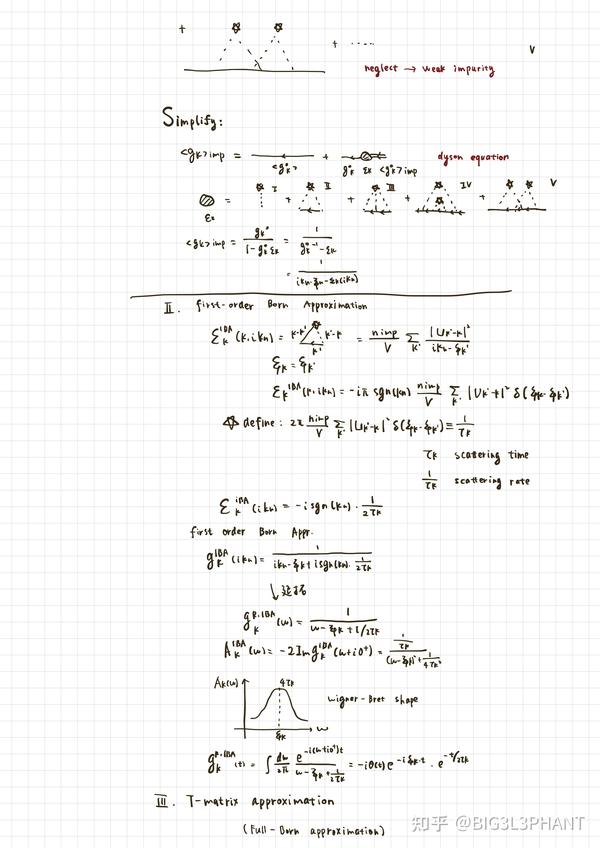 + + ..... V
neglect → weak impurity
Simplify:
<gk>imp = <g⁰k> + g⁰k Σk <g⁰k>imp dyson equation
Σk = I + II + III + IV + V
<gk>imp = gk⁰ / (1 - g⁰k Σk) = 1 / (g⁰k⁻¹ - Σk)
= 1 / (ikn - ξk - Σk(ikn))
II. first-order Born Approximation
Σk^1BA (k, ikn) = k-k' k'-k k' = nimp/V Σk' |Uk'-k|² / (ikn - ξk')
ξk = ξk'
Σk^1BA (k, ikn) = -iπ sgn(kn) nimp/V Σk' |Uk'-k|² δ(ξk - ξk')
☆ define: 2π nimp/V Σk' |Uk'-k|² δ(ξk - ξk') ≡ 1/τk
τk scattering time
1/τk scattering rate
Σk^1BA (ikn) = -i sgn(kn) · 1/2τk
first order Born Appr.
gk^1BA (ikn) = 1 / (ikn - ξk + i sgn(kn) · 1/2τk)
↓ 延拓
gk^R·1BA (ω) = 1 / (ω - ξk + i/2τk)
Ak^1BA (ω) = -2Im gk^1BA (ω+i0⁺) = (1/τk) / ((ω-ξk)² + 1/4τk²)
Ak(ω) 4τk
wigner-Bret shape
ξk ω
gk^R·1BA (t) = ∫ dω/2π e^-i(ω+i0⁺)t / (ω - ξk + i/2τk) = -iθ(t) e^-iξk·t · e^-t/2τk
III. T-matrix approximation
(Full-Born approximation)
知乎 @BIG3L3PHANT